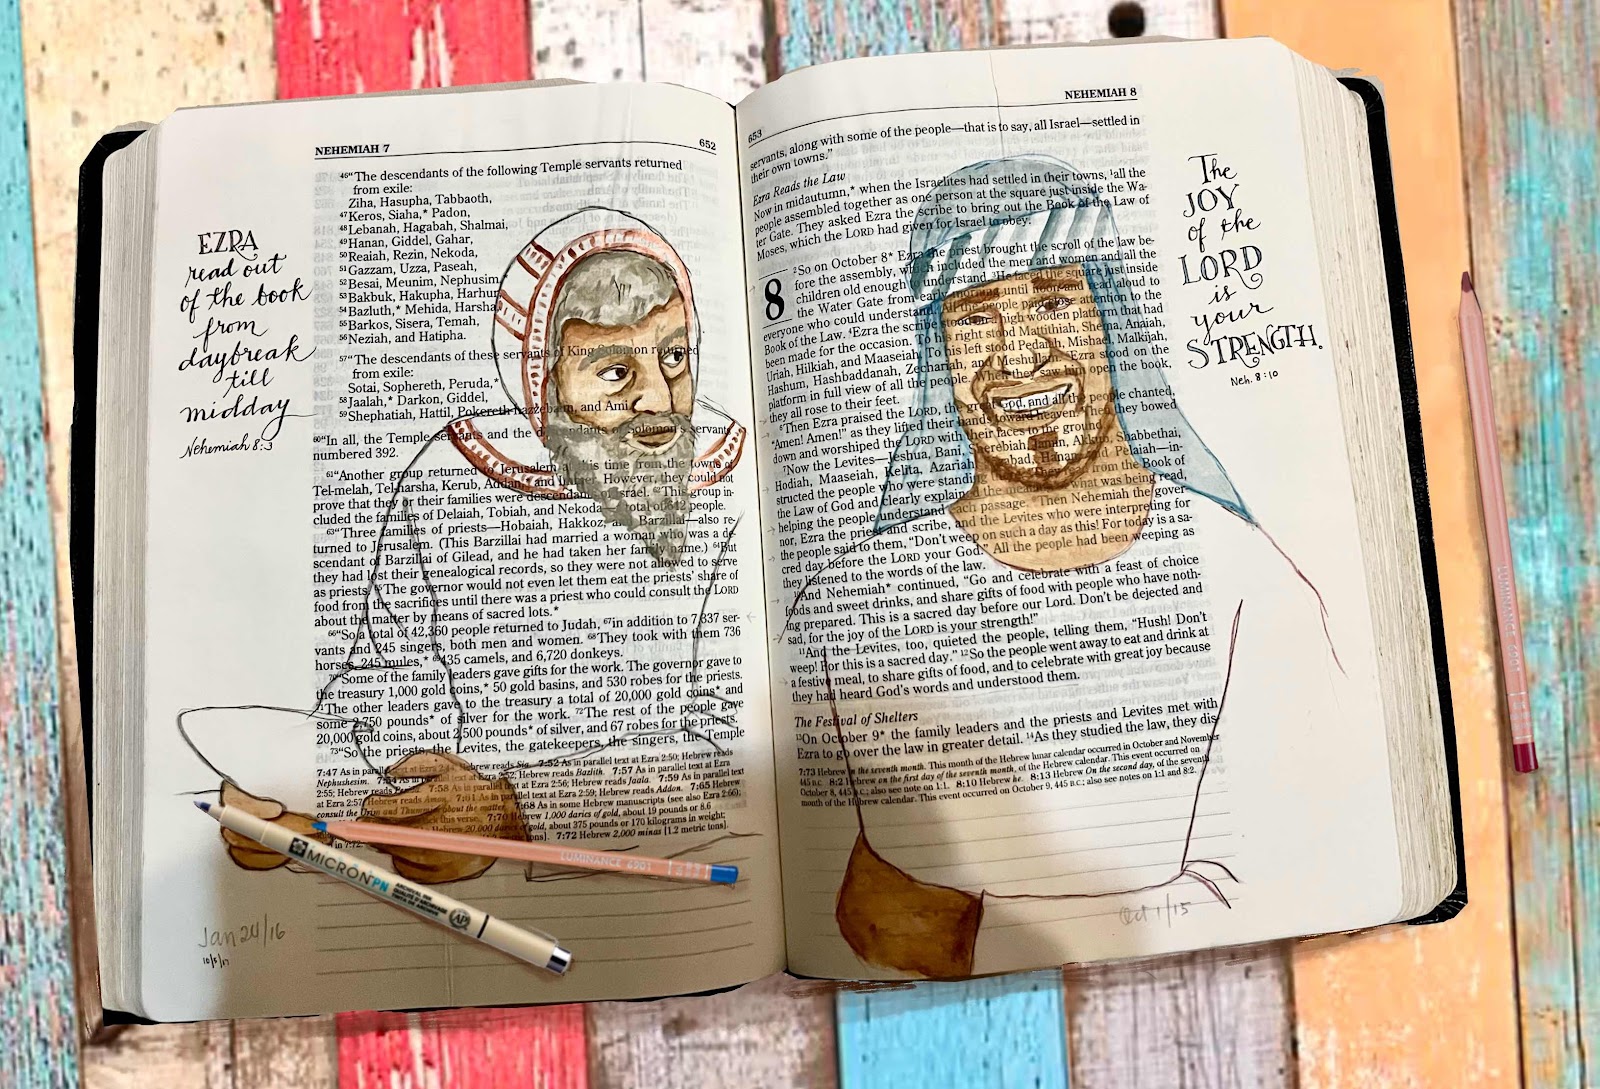 EZRA
read out
of the book
from
daybreak
till
midday
Nehemiah 8:3
Jan 24/16
10/5/17
NEHEMIAH 7
652
46“The descendants of the following Temple servants returned
from exile:
Ziha, Hasupha, Tabbaoth,
47 Keros, Siaha,* Padon,
48 Lebanah, Hagabah, Shalmai,
49 Hanan, Giddel, Gahar,
50 Reaiah, Rezin, Nekoda,
51 Gazzam, Uzza, Paseah,
52 Besai, Meunim, Nephusim
53 Bakbuk, Hakupha, Harhur
54 Bazluth,* Mehida, Harsha
55 Barkos, Sisera, Temah,
56 Neziah, and Hatipha.
57“The descendants of these servants of King Solomon returned
from exile:
Sotai, Sophereth, Peruda,*
58 Jaalah,* Darkon, Giddel,
59 Shephatiah, Hattil, Pokereth-hazzebaim, and Ami
60“In all, the Temple servants and the descendants of Solomon’s servants
numbered 392.
61“Another group returned to Jerusalem at this time from the towns of
Tel-melah, Tel-harsha, Kerub, Addan, and Immer. However, they could not
prove that they or their families were descendants of Israel. 62This group in-
cluded the families of Delaiah, Tobiah, and Nekoda total of 642 people.
63“Three families of priests—Hobaiah, Hakkoz, and Barzillai—also re-
turned to Jerusalem. (This Barzillai had married a woman who was a de-
scendant of Barzillai of Gilead, and he had taken her family name.) 64But
they had lost their genealogical records, so they were not allowed to serve
as priests. 65The governor would not even let them eat the priests’ share of
food from the sacrifices until there was a priest who could consult the LORD
about the matter by means of sacred lots.*
66“So a total of 42,360 people returned to Judah, 67in addition to 7,337 ser-
vants and 245 singers, both men and women. 68They took with them 736
horses, 245 mules,* 69435 camels, and 6,720 donkeys.
70“Some of the family leaders gave gifts for the work. The governor gave to
the treasury 1,000 gold coins,* 50 gold basins, and 530 robes for the priests.
71The other leaders gave to the treasury a total of 20,000 gold coins* and
some 2,750 pounds* of silver for the work. 72The rest of the people gave
20,000 gold coins, about 2,500 pounds* of silver, and 67 robes for the priests.
73“So the priests, the Levites, the gatekeepers, the singers, the Temple
7:47 As in parallel text at Ezra 2:44; Hebrew reads Sia. 7:52 As in parallel text at Ezra 2:50; Hebrew reads
Nephushesim. 7:54 As in parallel text at Ezra 2:52; Hebrew reads Bazlith. 7:57 As in parallel text at Ezra
2:55; Hebrew reads 7:58 As in parallel text at Ezra 2:56; Hebrew reads Jaala. 7:59 As in parallel text
at Ezra 2:57; Hebrew reads Amon. 7:61 As in parallel text at Ezra 2:59; Hebrew reads Addon. 7:65 Hebrew
consult the Urim and Thummim about the matter. 7:68 As in some Hebrew manuscripts (see also Ezra 2:66);
this verse. 7:70 Hebrew 1,000 darics of gold, about 19 pounds or 8.6
Hebrew 20,000 darics of gold, about 375 pounds or 170 kilograms in weight;
in 7:72. 7:72 Hebrew 2,000 minas [1.2 metric tons].
MICRON PN
ARCHIVAL INK
AP
LUMINANCE 6901
653
NEHEMIAH 8
servants, along with some of the people—that is to say, all Israel—settled in
their own towns.”
Ezra Reads the Law
Now in midautumn,* when the Israelites had settled in their towns, 1all the
people assembled together as one person at the square just inside the Wa-
ter Gate. They asked Ezra the scribe to bring out the Book of the Law of
Moses, which the LORD had given for Israel to obey.
8
2So on October 8* Ezra the priest brought the scroll of the law be-
fore the assembly, which included the men and women and all the
children old enough to understand. 3He faced the square just inside
the Water Gate from early morning until noon and read aloud to
everyone who could understand. All the people paid close attention to the
Book of the Law. 4Ezra the scribe stood on a high wooden platform that had
been made for the occasion. To his right stood Mattithiah, Shema, Anaiah,
Uriah, Hilkiah, and Maaseiah. To his left stood Pedaiah, Mishael, Malkijah,
Hashum, Hashbaddanah, Zechariah, and Meshullam. 5Ezra stood on the
platform in full view of all the people. When they saw him open the book,
they all rose to their feet.
6Then Ezra praised the LORD, the great God, and all the people chanted,
“Amen! Amen!” as they lifted their hands toward heaven. Then they bowed
down and worshiped the LORD with their faces to the ground.
7Now the Levites—Jeshua, Bani, Sherebiah, Jamin, Akkub, Shabbethai,
Hodiah, Maaseiah, Kelita, Azariah, Jozabad, Hanan, and Pelaiah—in-
structed the people who were standing 8They read from the Book of
the Law of God and clearly explained the meaning of what was being read,
helping the people understand each passage. 9Then Nehemiah the gover-
nor, Ezra the priest and scribe, and the Levites who were interpreting for
the people said to them, “Don’t weep on such a day as this! For today is a sa-
cred day before the LORD your God.” All the people had been weeping as
they listened to the words of the law.
10And Nehemiah* continued, “Go and celebrate with a feast of choice
foods and sweet drinks, and share gifts of food with people who have noth-
ing prepared. This is a sacred day before our Lord. Don’t be dejected and
sad, for the joy of the LORD is your strength!”
11And the Levites, too, quieted the people, telling them, “Hush! Don’t
weep! For this is a sacred day.” 12So the people went away to eat and drink at
a festive meal, to share gifts of food, and to celebrate with great joy because
they had heard God’s words and understood them.
The Festival of Shelters
13On October 9* the family leaders and the priests and Levites met with
Ezra to go over the law in greater detail. 14As they studied the law, they dis-
7:73 Hebrew in the seventh month. This month of the Hebrew lunar calendar occurred in October and November
445 B.C. 8:2 Hebrew on the first day of the seventh month, of the Hebrew calendar. This event occurred on
October 8, 445 B.C.; also see note on 1:1. 8:10 Hebrew he. 8:13 Hebrew On the second day, of the seventh
month of the Hebrew calendar. This event occurred on October 9, 445 B.C.; also see notes on 1:1 and 8:2.
Oct 1/15
The
JOY
of the
LORD
is
your
STRENGTH.
Neh. 8:10
LUMINANCE 6901